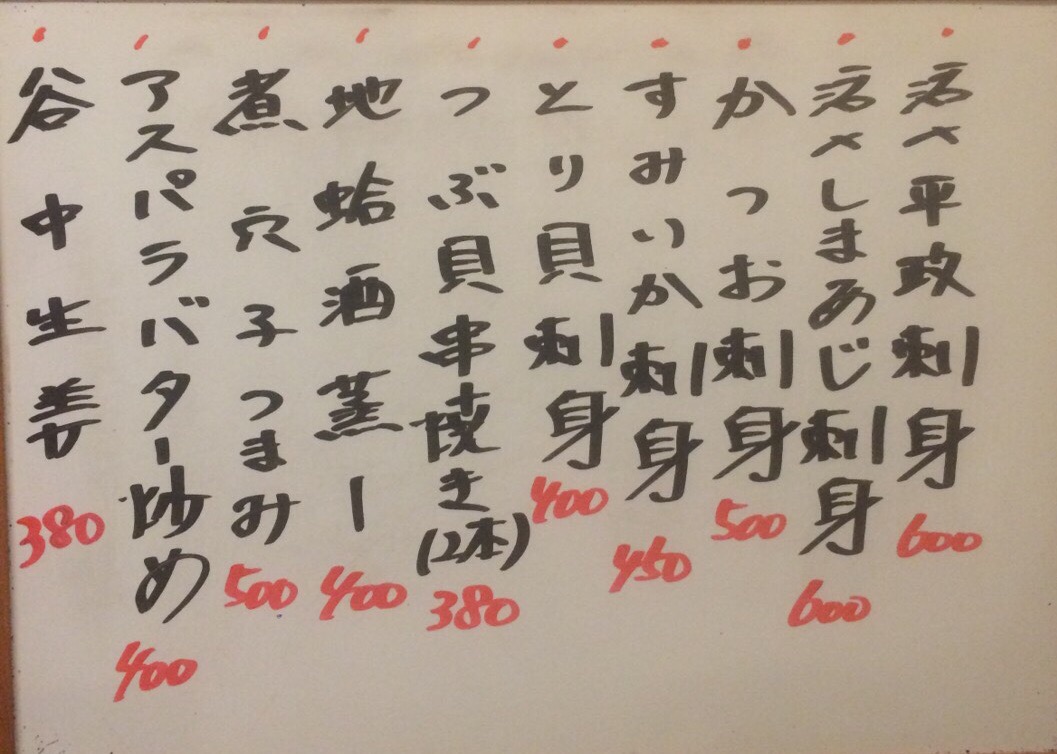 活〆平政刺身 600
活〆しまあじ刺身 600
かつお刺身 500
すみいか刺身 450
とり貝刺身 400
つぶ貝串焼き(2本) 380
地蛤酒蒸し 400
煮穴子つまみ 500
アスパラバター炒め 400
谷中生姜 380